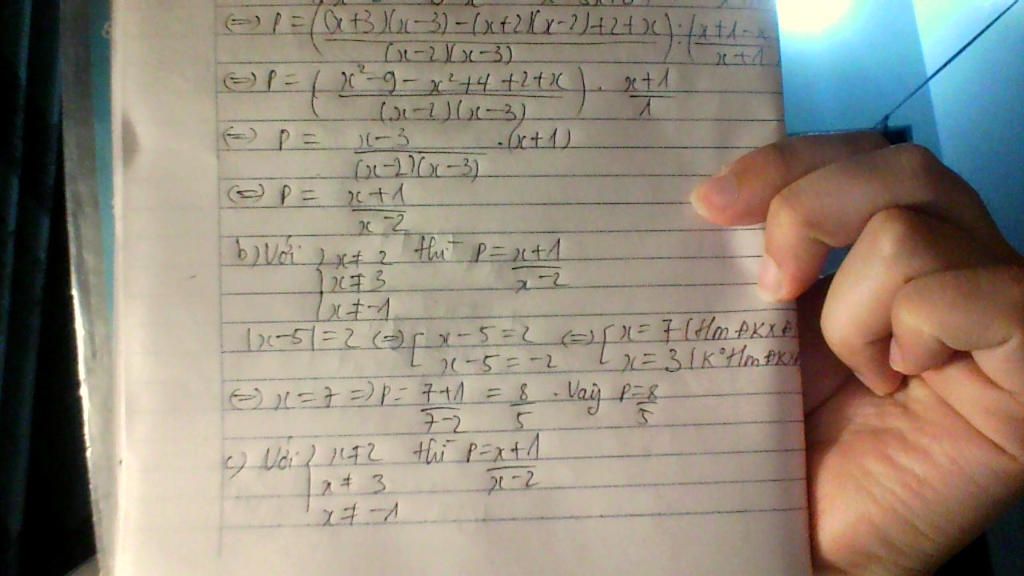 <=> P = ((x+3)(x-3) - (x+2)(x-2) + 2 + x) / (x-2)(x-3) : (x+1-x / x+1
<=> P = (x² - 9 - x² + 4 + 2 + x / (x-2)(x-3)) . x+1 / 1
<=> P = x-3 / (x-2)(x-3) . (x+1)
<=> P = x+1 / x-2
b) Với { x ≠ 2 thì P = x+1 / x-2
x ≠ 3
x ≠ -1
|x-5| = 2 <=> [ x-5 = 2 <=> [ x = 7 (tm ĐKXĐ
x-5 = -2 x = 3 (K° tm ĐKX
<=> x = 7 => P = 7+1 / 7-2 = 8/5 . Vậy P = 8/5
c) Với { x ≠ 2 thì P = x+1 / x-2
x ≠ 3
x ≠ -1